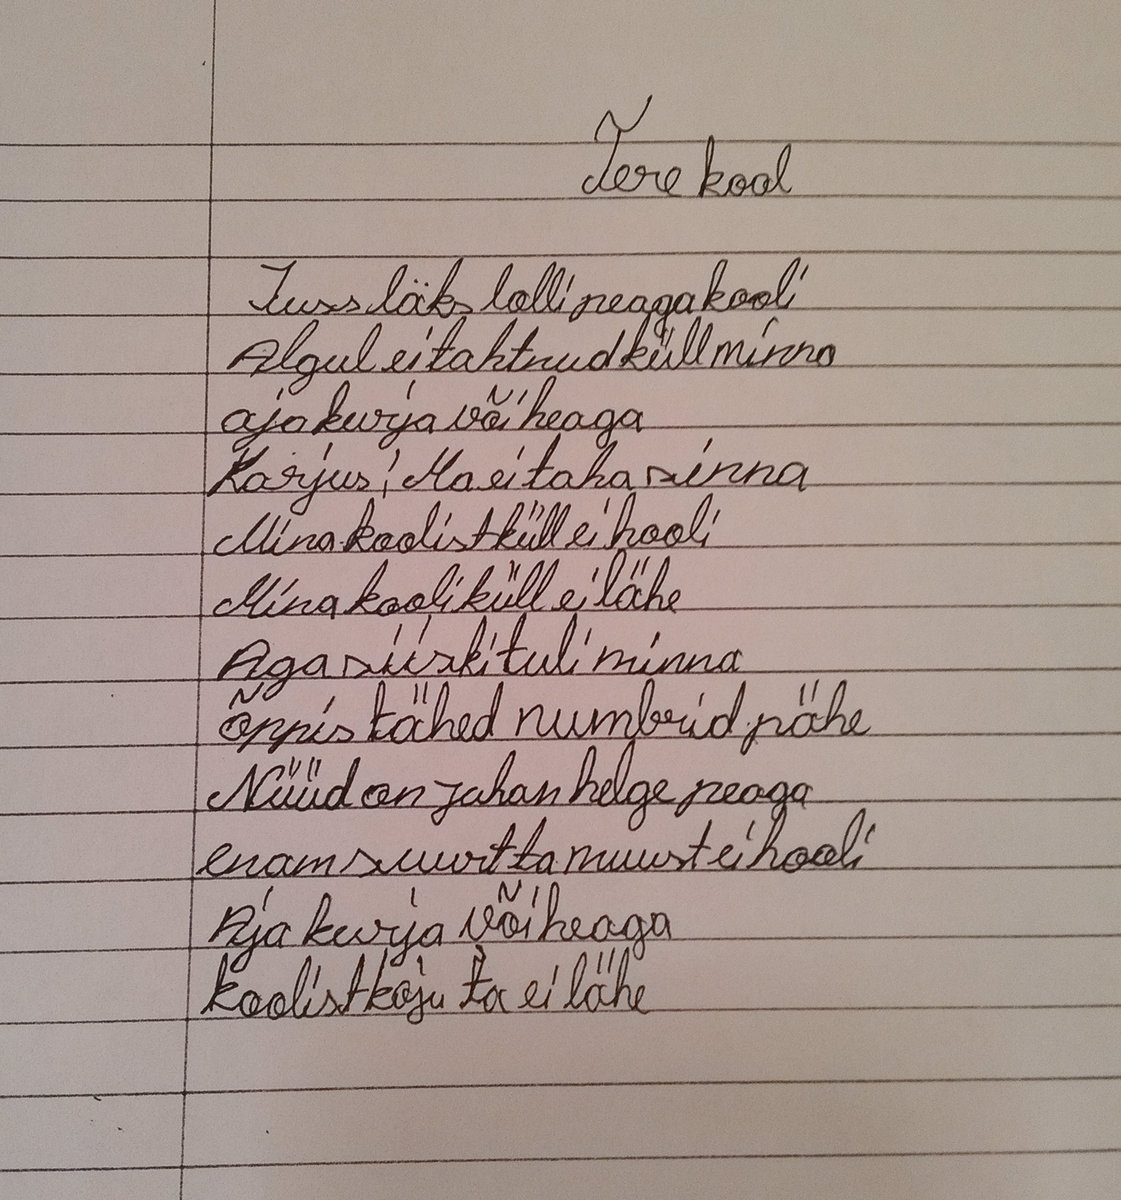 Tere kool
Juss läks lolli peaga kooli
Algul ei tahtnud küll minna
aja kurja või heaga
Karjus! Ma ei taha sinna
Mina koolist küll ei hooli
Mina kooli küll ei lähe
Aga siiski tuli minna
õppis tähed numbrid pähe
Nüüd on juhan helge peaga
enam suurt ta muust ei hooli
Aja kurja või heaga
koolist koju ta ei lähe